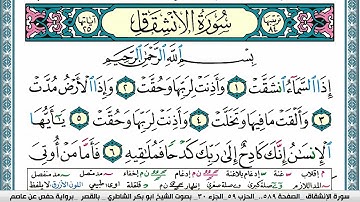 سُورَةُ الِانْشِقَاقِ
بِسْمِ اللَّهِ الرَّحْمَٰنِ الرَّحِيمِ
إِذَا ٱلسَّمَآءُ ٱنشَقَّتْ ١ وَأَذِنَتْ لِرَبِّهَا وَحُقَّتْ ٢ وَإِذَا ٱلْأَرْضُ مُدَّتْ
٣ وَأَلْقَتْ مَا فِيهَا وَتَخَلَّتْ ٤ وَأَذِنَتْ لِرَبِّهَا وَحُقَّتْ ٥ يَٰٓأَيُّهَا
ٱلْإِنسَٰنُ إِنَّكَ كَادِحٌ إِلَىٰ رَبِّكَ كَدْحًا فَمُلَٰقِيهِ ٦ فَأَمَّا مَنْ أُوتِىَ
سورة الإنشقاق، الصفحة ٥٨٩، الحزب ٥٩ الجزء ٣٠، بصوت الشيخ أبو بكر الشاطري بالقصر برواية حفص عن عاصم